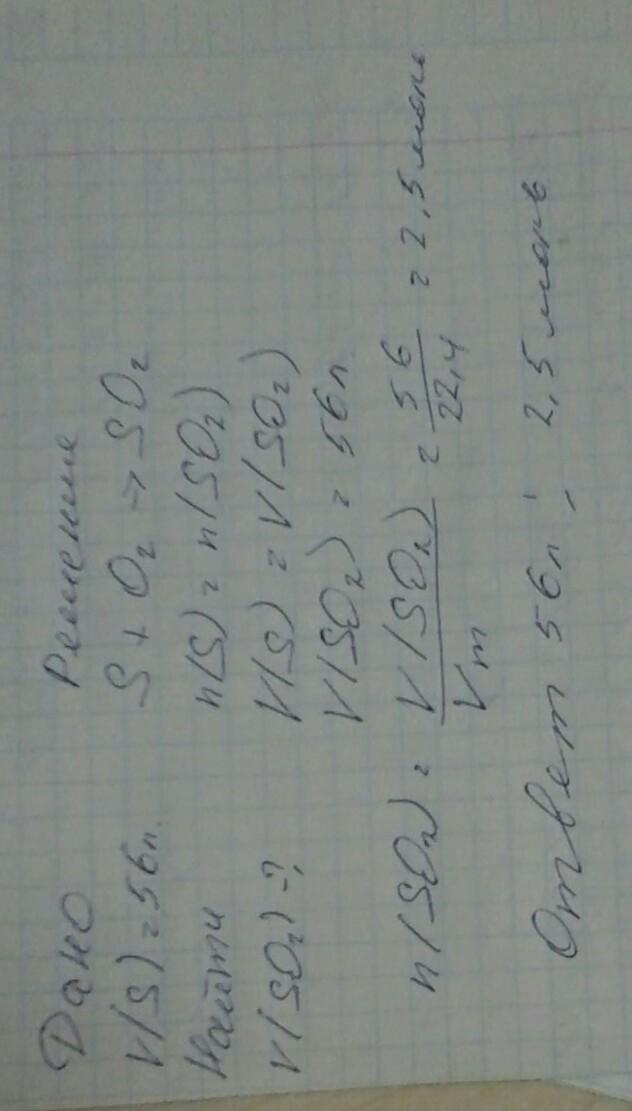 Дано
V(S) = 56л.
Найти
V(SO₂) - ?
Решение
S + O₂ → SO₂
n(S) = n(SO₂)
V(S) = V(SO₂)
V(SO₂) = 56л.
n(SO₂) = V(SO₂)/Vm = 56/22,4 = 2,5 моль
Ответ 56л; 2,5 моль